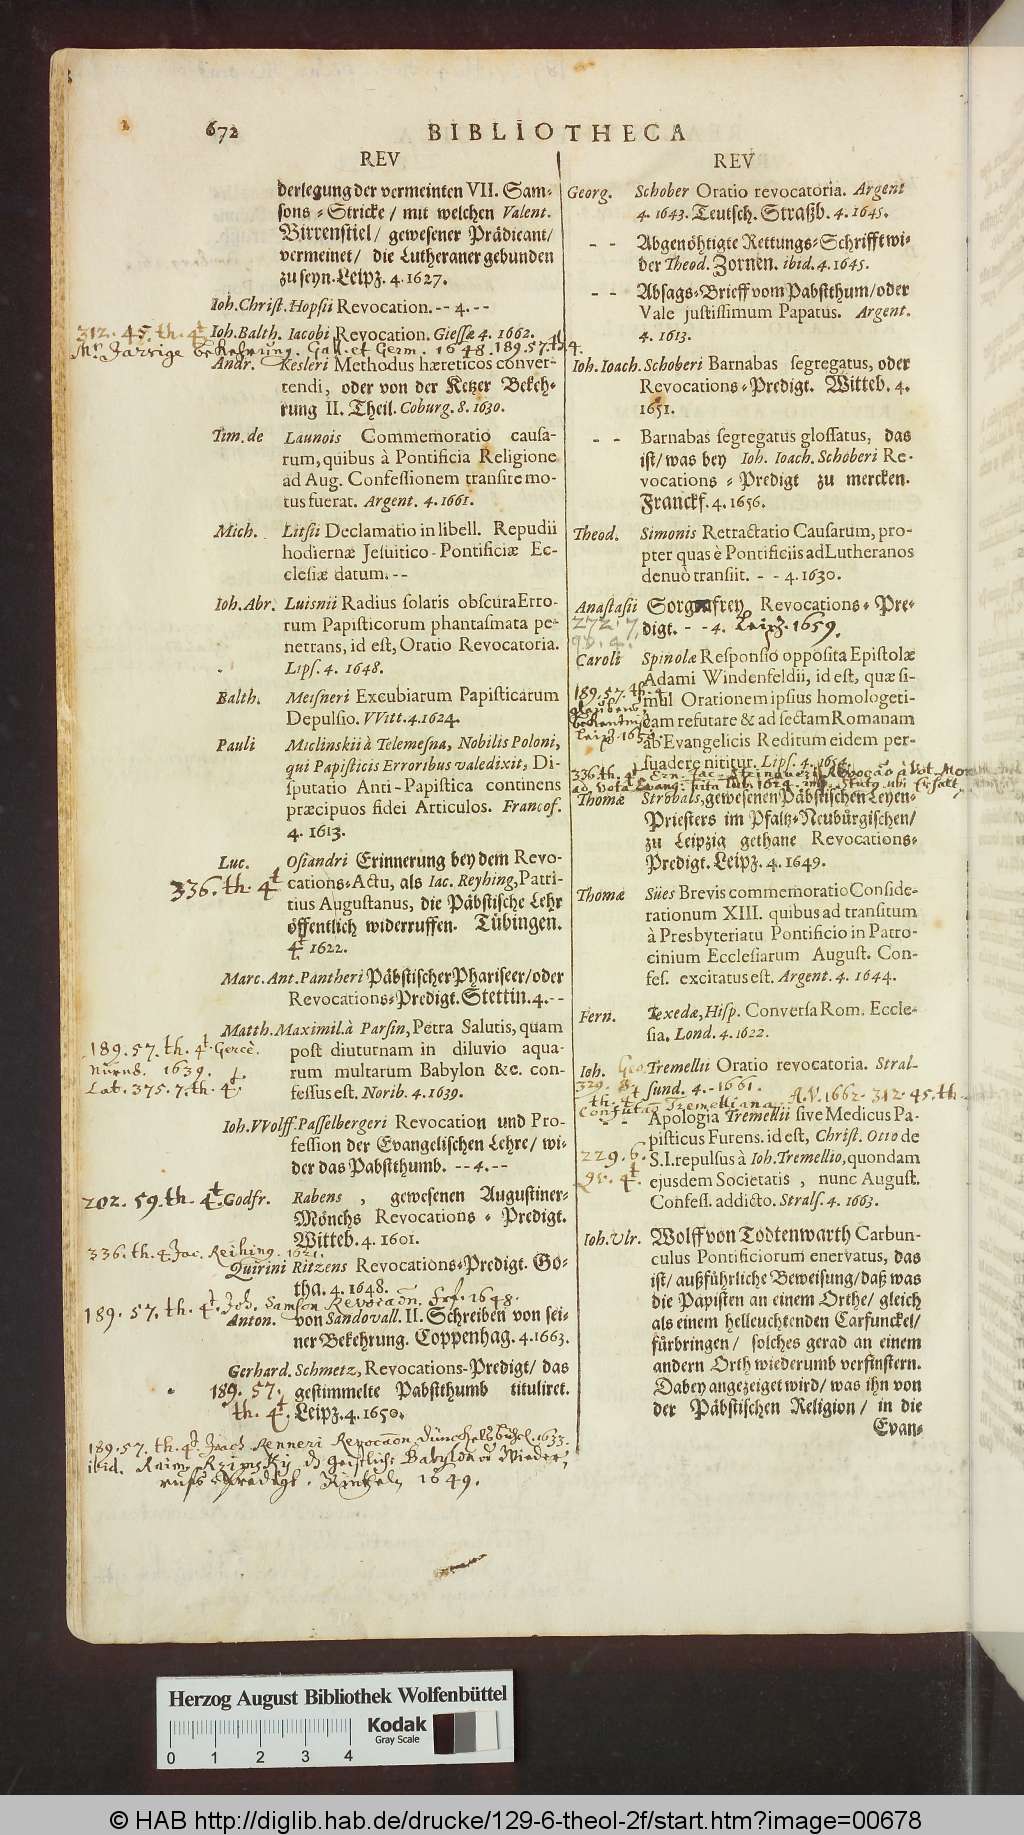 672
BIBLIOTHECA
REV
derlegung der vermeinten VII. Sam-
sons-Stricke/ mit welchen Valent.
Birrenstiel/ gewesener Prädicant/
vermeinet/ die Lutheraner gebunden
zu seyn. Leipz. 4. 1627.
Ioh. Christ. Hopsii Revocation. -- 4. --
312. 45. th. 4t Ioh. Balth. Iacobi Revocation. Giessæ 4. 1662.
Bekehrung. Gall. et Germ. 1648. 189. 57. th. 4.
Andr. Kesleri Methodus hæreticos conver-
tendi, oder von der Ketzer Bekeh-
rung II. Theil. Coburg. 8. 1630.
Tim. de Launois Commemoratio causa-
rum, quibus à Pontificia Religione
ad Aug. Confessionem transire mo-
tus fuerat. Argent. 4. 1661.
Mich. Litsii Declamatio in libell. Repudii
hodiernæ Jesuitico-Pontificiæ Ec-
clesiæ datum. --
Ioh. Abr. Luisnii Radius solaris obscura Erro-
rum Papisticorum phantasmata pe-
netrans, id est, Oratio Revocatoria.
Lips. 4. 1648.
Balth. Meisneri Excubiarum Papisticarum
Depulsio. VVitt. 4. 1624.
Pauli Miclinskii à Telemesna, Nobilis Poloni,
qui Papisticis Erroribus valedixit, Di-
sputatio Anti-Papistica continens
præcipuos fidei Articulos. Francof.
4. 1613.
Luc. Osiandri Erinnerung bey dem Revo-
336. th. 4t cations-Actu, als Iac. Reyhing, Patri-
tius Augustanus, die Päbstische Lehr
öffentlich widerruffen. Tübingen.
4t 1622.
Marc. Ant. Pantheri Päbstischer Phariseer/ oder
Revocations-Predigt. Stettin. 4. --
Matth. Maximil. à Parsin, Petra Salutis, quam
189. 57. th. 4t. post diuturnam in diluvio aqua-
Nürnb. 1639. rum multarum Babylon &c. con-
Lat. 375. 7. th. 4t fessus est. Norib. 4. 1639.
Ioh. VVolff. Passelbergeri Revocation und Pro-
fession der Evangelischen Lehre/ wi-
der das Pabstthumb. -- 4. --
202. 59. th. 4t. Godfr. Rabens, gewesenen Augustiner-
Mönchs Revocations-Predigt.
Witteb. 4. 1601.
336. th. 4 Jac. Reihing. 1621.
Quirini Ritzens Revocations-Predigt. Go-
tha. 4. 1648.
189. 57. th. 4t. Joh. Samson Revocaõn. Erf. 1648.
Anton. von Sandovall. II. Schreiben von sei-
ner Bekehrung. Coppenhag. 4. 1663.
Gerhard. Schmetz, Revocations-Predigt/ das
189. 57. gestimmelte Pabstthumb tituliret.
th. 4t. Leipz. 4. 1650.
189. 57. th. 4t. Joach Renneri Revocaõn 1633.
ibid. Raim. Rzimsky Geistlich Babylon Wieder
rufs Predigt. Rinteln 1649.
REV
Georg. Schober Oratio revocatoria. Argent
4. 1643. Teutsch. Straßb. 4. 1645.
- - Abgenöhtigte Rettungs-Schrifft wi-
der Theod. Zornen. ibid. 4. 1645.
- - Absags-Brieff vom Pabstthum/ oder
Vale justissimum Papatus. Argent.
4. 1613.
Ioh. Ioach. Schoberi Barnabas segregatus, oder
Revocations-Predigt. Witteb. 4.
1651.
- - Barnabas segregatus glossatus, das
ist/ was bey Ioh. Ioach. Schoberi Re-
vocations-Predigt zu mercken.
Franckf. 4. 1656.
Theod. Simonis Retractatio Causarum, pro-
pter quas è Pontificiis ad Lutheranos
denuò transiit. - - 4. 1630.
Anastasii Sorgenfrey Revocations-Pre-
272. 7. digt. - - 4. Leipz. 1659.
qv. 4.
Caroli Spinolæ Responsio opposita Epistolæ
Adami Windenfeldii, id est, quæ si-
189. 57. th. 4 mul Orationem ipsius homologeti-
cam refutare & ad sectam Romanam
ab Evangelicis Reditum eidem per-
suadere nititur. Lips. 4. 1654.
336. th. 4
Thomæ Strobals, gewesenen Päbstischen Leyen-
Priesters im Pfaltz-Neubürgischen/
zu Leipzig gethane Revocations-
Predigt. Leipz. 4. 1649.
Thomæ Sües Brevis commemoratio Conside-
rationum XIII. quibus ad transitum
à Presbyteriatu Pontificio in Patro-
cinium Ecclesiarum August. Con-
fes. excitatus est. Argent. 4. 1644.
Fern. Texedæ, Hisp. Conversa Rom. Eccle-
sia. Lond. 4. 1622.
Ioh. Geo. Tremellii Oratio revocatoria. Stral-
329. 8. sund. 4. - 1661.
th. 4t Tremelliana A.V. 1662. 312. 45. th.
- - Apologia Tremellii sive Medicus Pa-
pisticus Furens. id est, Christ. Otto de
229. 6. S.I. repulsus à Ioh. Tremellio, quondam
qv. 4t. ejusdem Societatis, nunc August.
Confess. addicto. Strals. 4. 1663.
Ioh. Vlr. Wolff von Todtenwarth Carbun-
culus Pontificiorum enervatus, das
ist/ außführliche Beweisung/ daß was
die Papisten an einem Orthe/ gleich
als einem helleuchtenden Carfunckel/
fürbringen/ solches gerad an einem
andern Orth wiederumb verfinstern.
Dabey angezeiget wird/ was ihn von
der Päbstischen Religion/ in die
Evan-
Herzog August Bibliothek Wolfenbüttel
Kodak
Gray Scale
0 1 2 3 4
© HAB http://diglib.hab.de/drucke/129-6-theol-2f/start.htm?image=00678